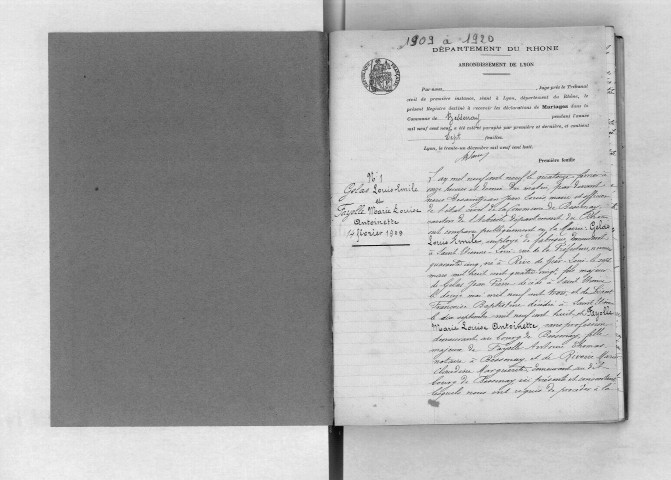 1909 à 1920
DÉPARTEMENT DU RHONE
ARRONDISSEMENT DE LYON
Par nous, Juge près le Tribunal
civil de première instance, séant à Lyon, département du Rhône, le
présent Registre destiné à recevoir les déclarations de Mariages dans la
Commune de Bessenay pendant l'année
mil neuf cent neuf, a été coté et paraphé par première et dernière, et contient
sept feuilles.
Lyon, le trente-un décembre mil neuf cent huit.
Première feuille
N° 1
Gelas Louis Emile
et
Fayolle Marie Louise
Antoinette
14 février 1909
L'an mil neuf cent neuf le quatorze février à
onze heures et demie du matin par devant
nous maire et officier
de l'état civil de la commune de Bessenay
canton de l'Arbresle département du Rhône
ont comparu publiquement en la mairie : Gelas
Louis Emile, employé de fabrique demeurant
à Saint Etienne Loire rue de la Préfecture,
né à Rive de Gier Loire le onze
mars mil huit cent quatre vingt, fils majeur
de Gelas Jean Pierre décédé à Saint Etienne
le douze mai mil neuf cent trois, et de
Françoise Baptistine décédée à Saint Etienne
le dix septembre mil neuf cent huit et Fayolle
Marie Louise Antoinette sans profession
demeurant au bourg de Bessenay, fille
majeure de Fayolle Antoine Thomas
notaire à Bessenay et de Rivoire Marie
Claudine Marguerite demeurant au dit
bourg de Bessenay ici présents et consentant
lesquels nous ont requis de procéder à la